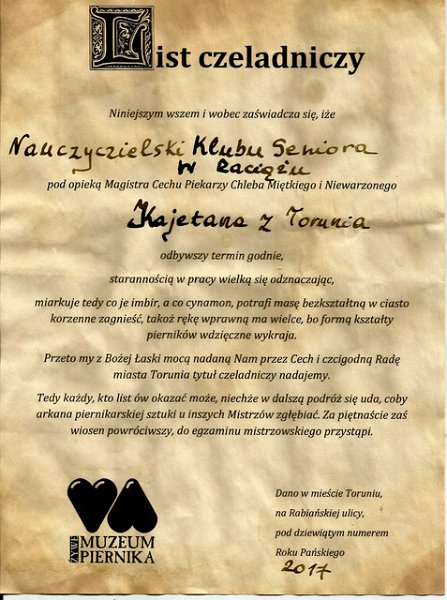 List czeladniczy
Niniejszym wszem i wobec zaświadcza się, iże
Nauczyczielski Klubu Seniora
w Raciążu
pod opieką Magistra Cechu Piekarzy Chleba Miętkiego i Niewarzonego
Kajetana z Torunia
odbywszy termin godnie,
starannością w pracy wielką się odznaczając,
miarkuje tedy co je imbir, a co cynamon, potrafi masę bezkształtną w ciasto
korzenne zagnieść, takoż rękę wprawną ma wielce, bo formą kształty
pierników wdzięczne wykraja.
Przeto my z Bożej Łaski mocą nadaną Nam przez Cech i czcigodną Radę
miasta Torunia tytuł czeladniczy nadajemy.
Tedy każdy, kto list ów okazać może, niechże w dalszą podróż się uda, coby
arkana piernikarskiej sztuki u inszych Mistrzów zgłębiać. Za piętnaście zaś
wiosen powróciwszy, do egzaminu mistrzowskiego przystąpi.
Dano w mieście Toruniu,
na Rabiańskiej ulicy,
pod dziewiątym numerem
Roku Pańskiego
2017
ŻYWE MUZEUM
PIERNIKA